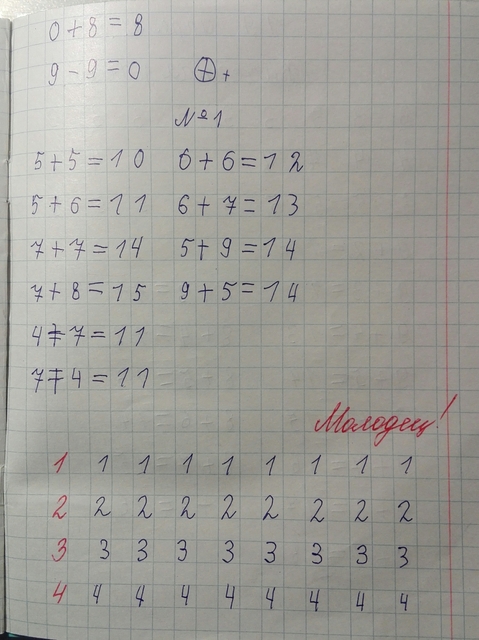 0+8=8
9-9=0 ⊕+
№1
5+5=10 6+6=12
5+6=11 6+7=13
7+7=14 5+9=14
7+8=15 9+5=14
4+7=11
7+4=11
Молодец!
1 1 1 1 1 1 1 1 1
2 2 2 2 2 2 2 2 2
3 3 3 3 3 3 3 3 3
4 4 4 4 4 4 4 4 4